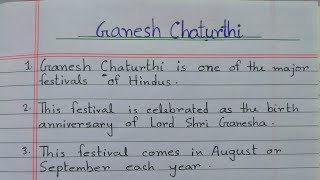 Ganesh Chaturthi
1. Ganesh Chaturthi is one of the major
festivals of Hindus.
2. This festival is celebrated as the birth
anniversary of Lord Shri Ganesha.
3. This festival comes in August or
September each year.